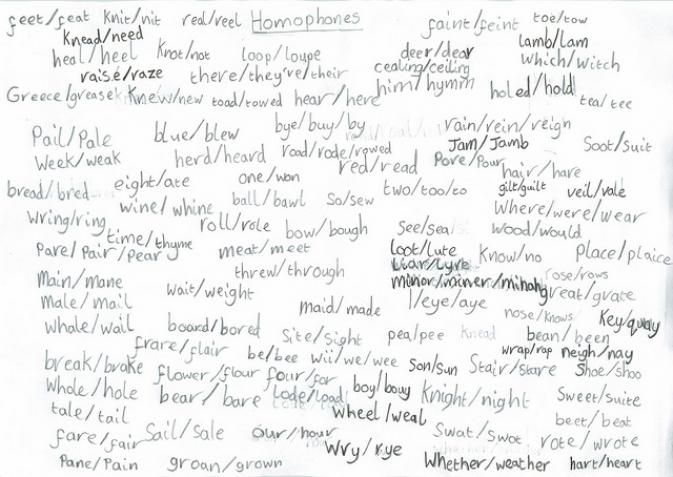 feet/feat Knit/nit real/reel Homophones faint/feint toe/tow
Knead/need lamb/lam
heal/heel Knot/not loop/loupe deer/dear which/witch
raise/raze there/they've/their cealing/ceiling
Greece/grease Knew/new toad/towed hear/here him/hymn holed/hold tea/tee
Pail/Pale blue/blew bye/buy/by rain/rein/reign
Week/weak herd/heard road/rode/rowed Jam/Jamb Soot/suit
red/read Pore/Pour hair/hare
bread/bred eight/ate one/won two/too/to gilt/guilt veil/vale
wring/ring wine/whine ball/bawl So/sew Where/were/wear
time/thyme roll/role bow/bough see/sea wood/would
Pare/Pair/pear meat/meet loot/lute Know/no Place/plaice
Main/mane threw/through Liar/Lyre rose/rows
wait/weight minor/miner/minah great/grate
Male/mail maid/made I/eye/aye nose/knows Key/quay
Whale/wail board/bored Site/Sight pea/pee Knead bean/been
frare/flair be/bee wii/we/wee wrap/rap neigh/nay
break/brake flower/flour four/for son/sun Stair/stare Shoe/shoo
Whole/hole bear/bare Lode/load boy/bouy Knight/night Sweet/suite
tale/tail wheel/weal beet/beat
fare/fair Sail/Sale our/hour Swat/Swot rote/wrote
Wry/rye
Pane/Pain groan/grown Whether/weather hart/heart